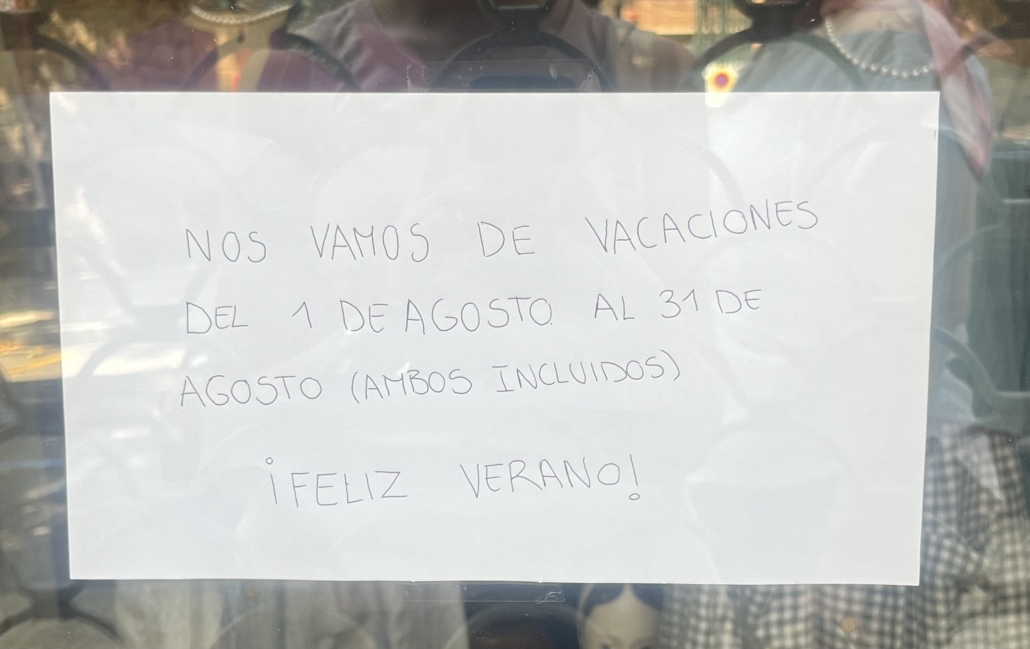 NOS VAMOS DE VACACIONES
DEL 1 DE AGOSTO AL 31 DE
AGOSTO (AMBOS INCLUIDOS)
¡FELIZ VERANO!